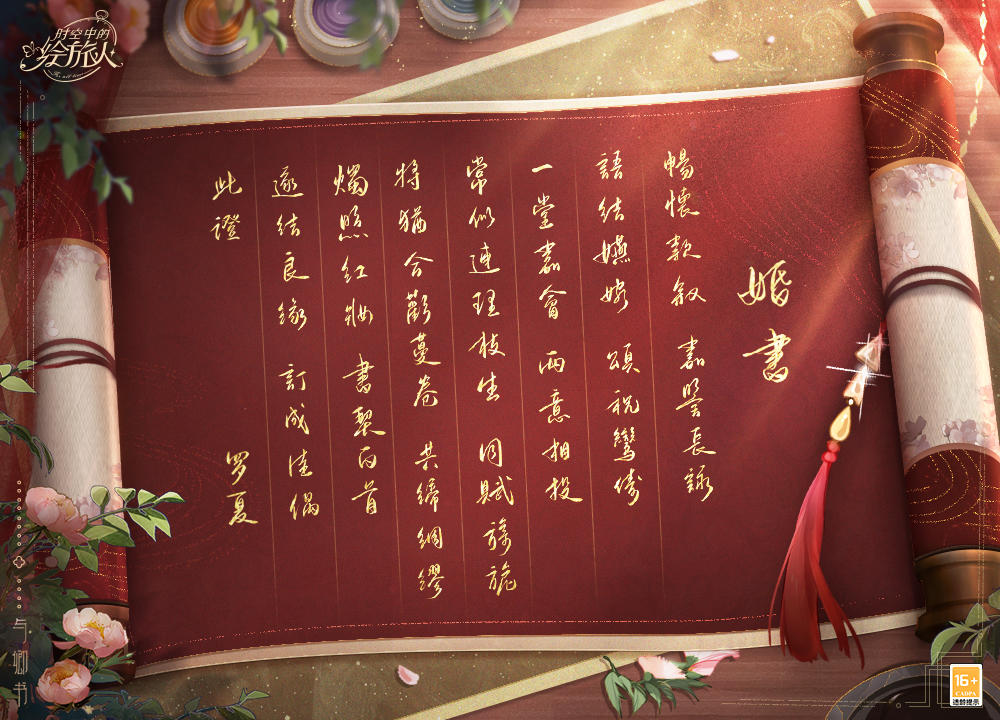 婚書
暢懷款叙 嘉譽長詠
語結嬿婉 頌祝鸞儔
一堂嘉會 兩意相投
常似連理枝生 同賦旖旎
將猶合歡蔓卷 共締綢繆
燭照紅妝 書契白首
遂结良緣 訂成佳偶
此證
罗夏
时空中的
绘旅人
与卿书
16+
CADPA
适龄提示